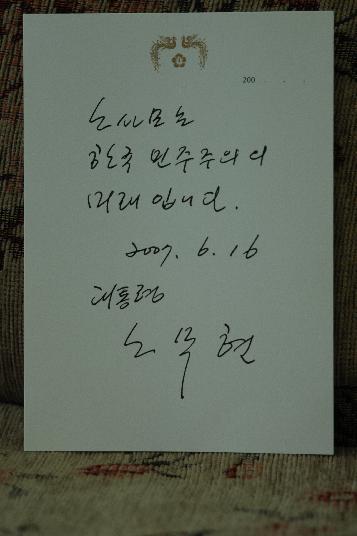 200 . . .
노사모는
한국 민주주의의
미래입니다.
2007. 6. 16
대통령
노무현